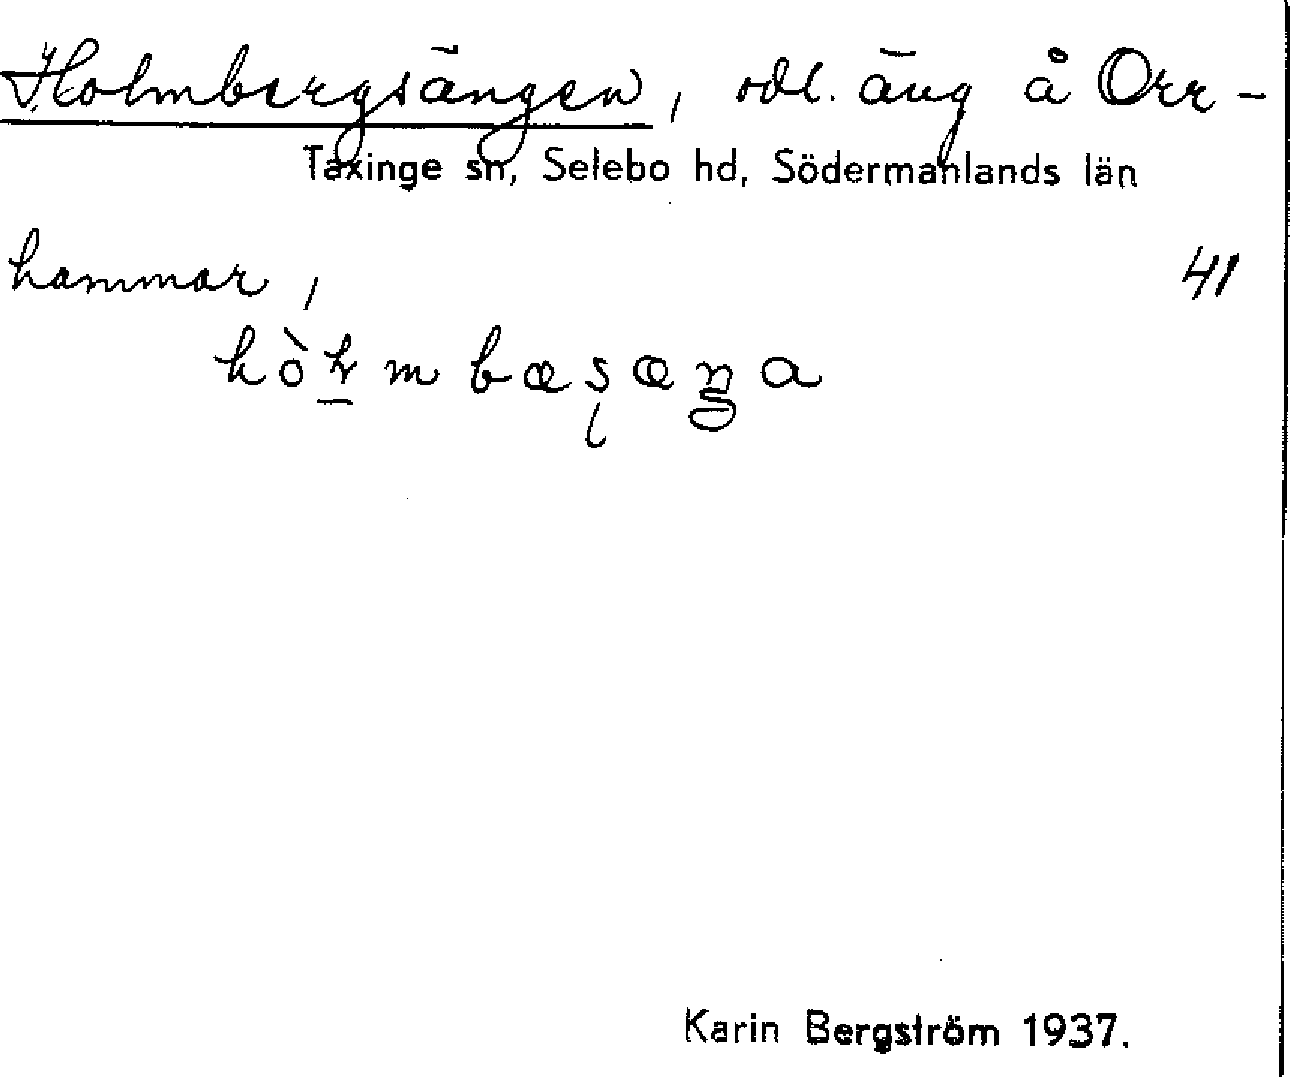 Holmbergsängen, odl. äng å Orr-
Taxinge sn, Selebo hd, Södermanlands län
hammar, 41
Karin Bergström 1937.